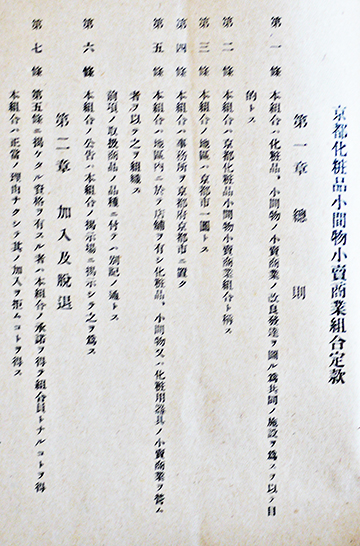 京都化粧品小間物小賣商業組合定款
第一章 總則
第一條 本組合ハ化粧品、小間物ノ小賣商業ノ改良發達ヲ圖ル爲共同ノ施設ヲ爲スヲ以テ目
的トス
第二條 本組合ハ京都化粧品小間物小賣商業組合ト稱ス
第三條 本組合ノ地區ハ京都市一圓トス
第四條 本組合ハ事務所ヲ京都府京都市ニ置ク
第五條 本組合ハ地區內ニ於テ店舖ヲ有シ化粧品、小間物又ハ化粧用器具ノ小賣商業ヲ營ム
者ヲ以テ之ヲ組織ス
前項ノ取扱商品ノ品種ニ付テハ別記ノ通トス
第六條 本組合ノ公告ハ本組合ノ揭示場ニ揭示シテ之ヲ爲ス
第二章 加入及脫退
第七條 第五條ニ揭ケタル資格ヲ有スル者ハ本組合ノ承諾ヲ得テ組合員トナルコトヲ得
本組合ハ正當ノ理由ナクシテ其ノ加入ヲ拒ムコトヲ得ス